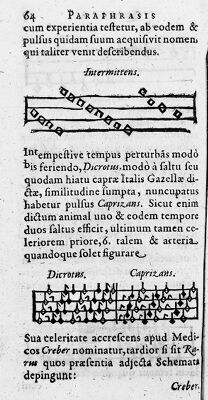 64 PARAPHRASIS
cum experientia testetur, ab eodem &
pulsus quidam suum acquisivit nomen,
qui taliter venit describendus.
Intermittens.
Intempestive tempus perturbãs modò
bis feriendo, Dicrotus. modò à saltu seu
quodam hiatu capræ Italis Gazellæ di-
ctæ, similitudine sumpta, nuncupatus
habetur pulsus Caprizans. Sicut enim
dictum animal uno & eodem tempore
duos saltus efficit, ultimum tamen ce-
leriorem priore, 6. talem & arteria
quandoque solet figurare.
Dicrotus. Caprizans.
Sua celeritate accrescens apud Medi-
cos Creber nominatur, tardior si sit Ra-
rus quos præsentia adjecta Schemata
depingunt:
Creber.